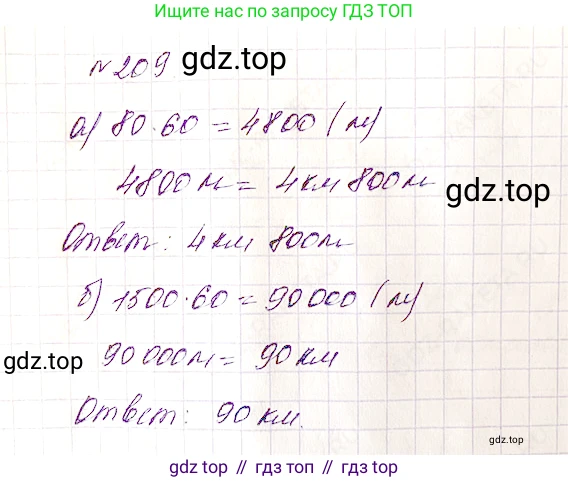 Ищите нас по запросу ГДЗ ТОП
№ 209
gdz.top
а) 80·60 = 4800 (м)
4800 м = 4 км 800 м
gdz.top
Ответ: 4 км 800 м
б) 1500·60 = 90 000 (м)
90 000 м = 90 км
gdz.top
Ответ: 90 км.
gdz.top
gdz.top // гдз топ // гдз.top